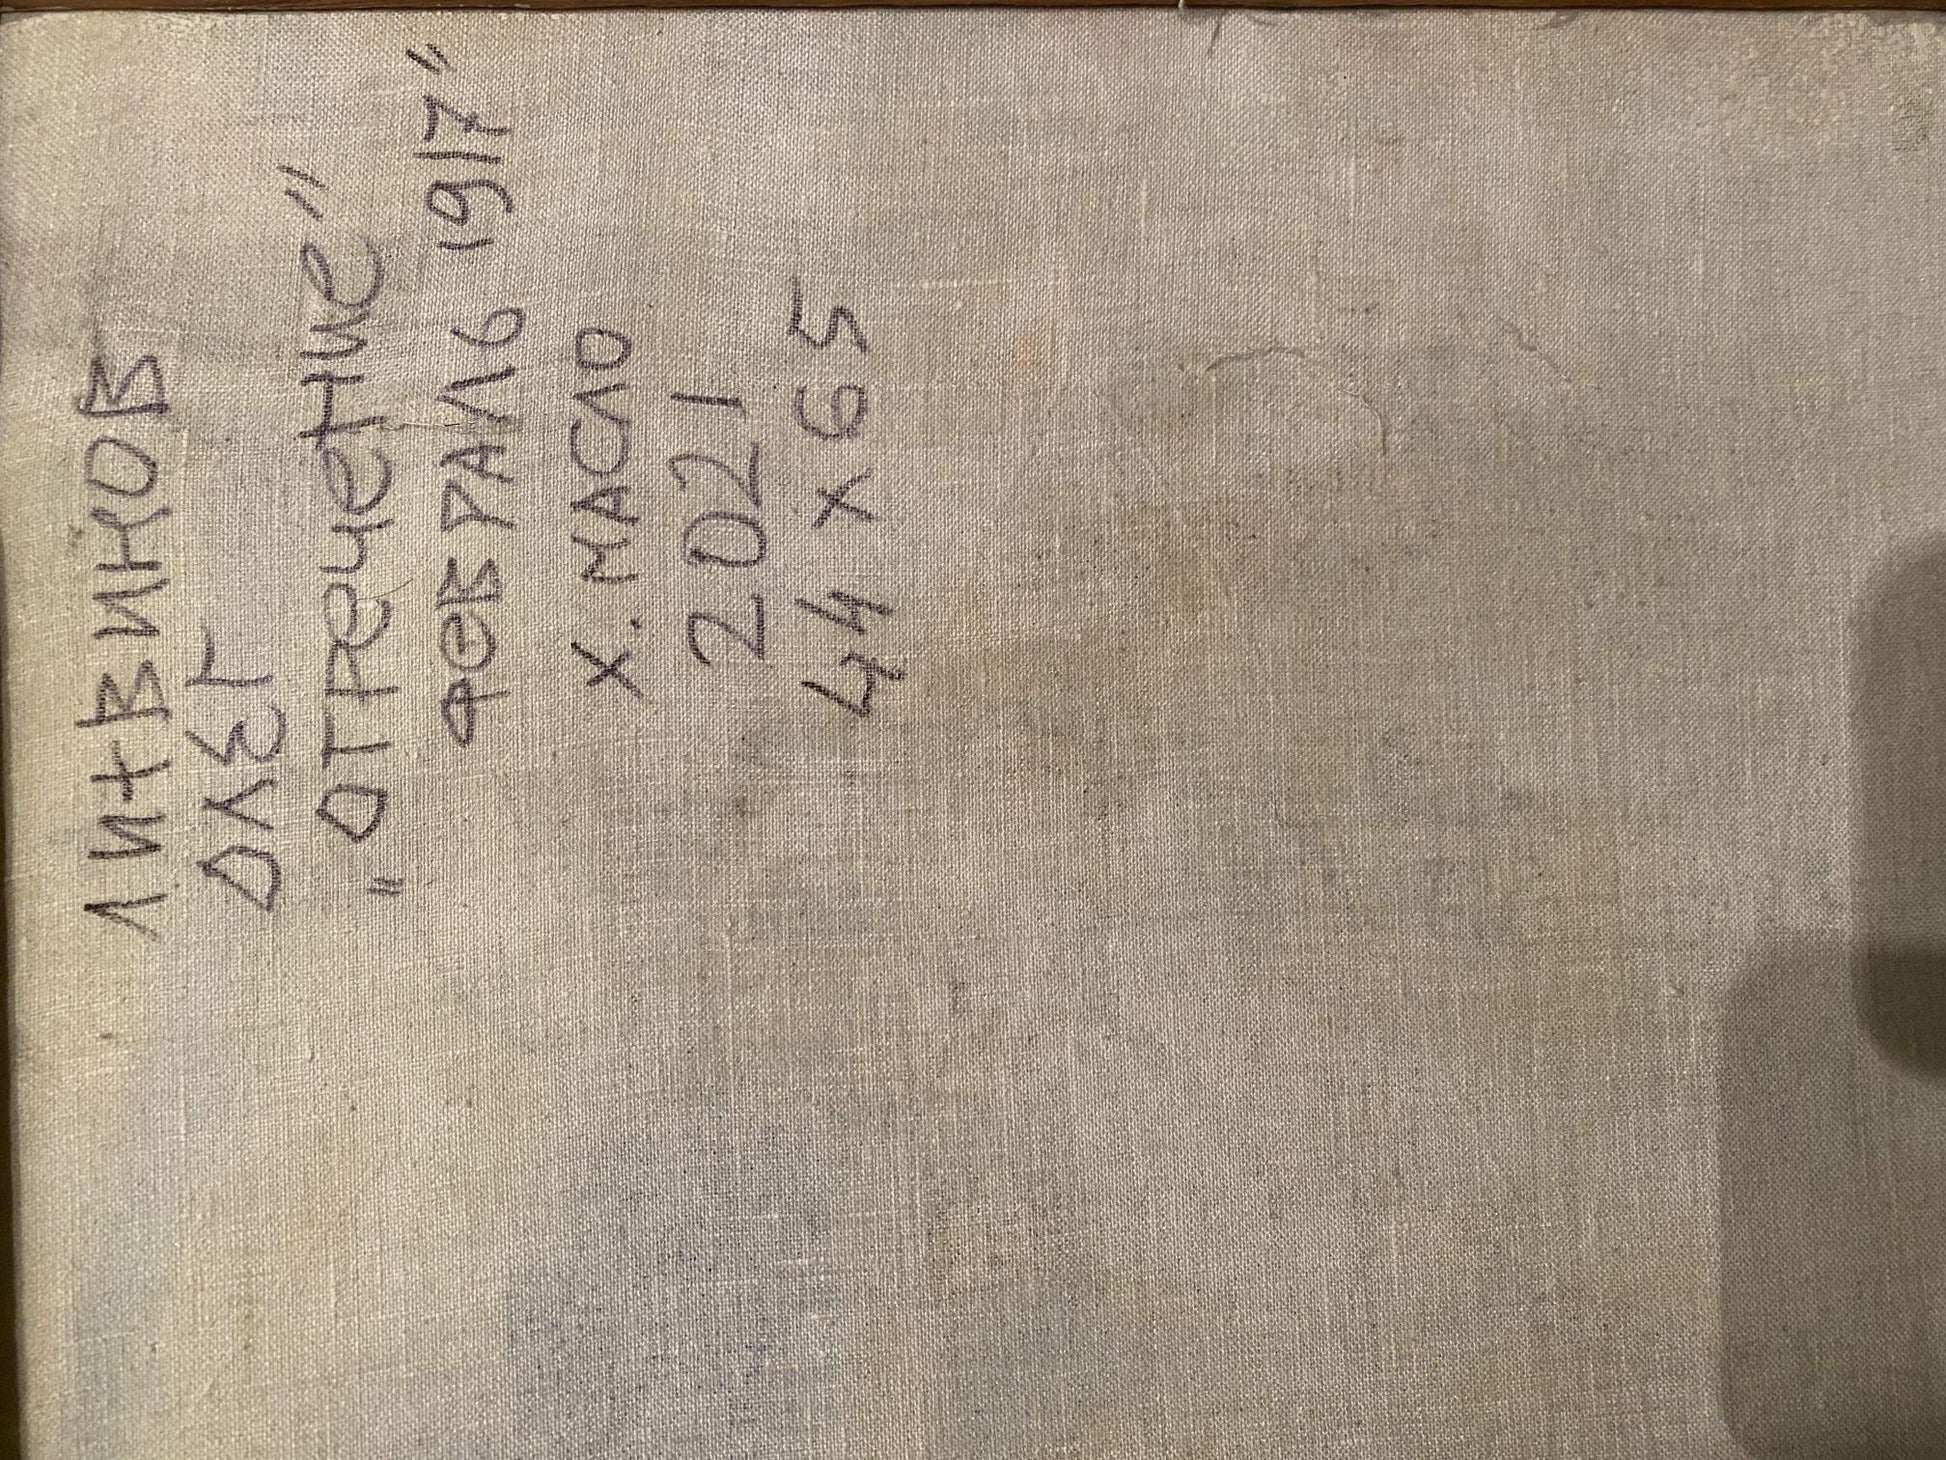 ЛИТВИНОВ
ОЛЕГ
"ОТРеЧеНИе"
ФЕВРАЛЬ 1917"
Х. МАСЛО
2021
44 х 65